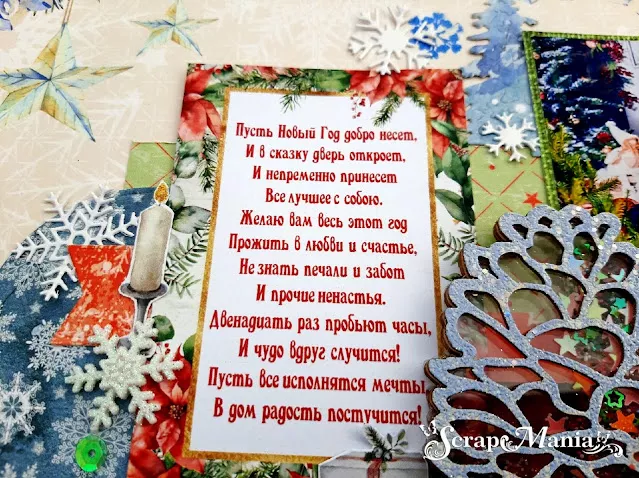 Пусть Новый Год добро несет,
И в сказку дверь откроет,
И непременно принесет
Все лучшее с собою.
Желаю вам весь этот год
Прожить в любви и счастье,
Не знать печали и забот
И прочие ненастья.
Двенадцать раз пробьют часы,
И чудо вдруг случится!
Пусть все исполнятся мечты,
В дом радость постучится!
ScrapeMania